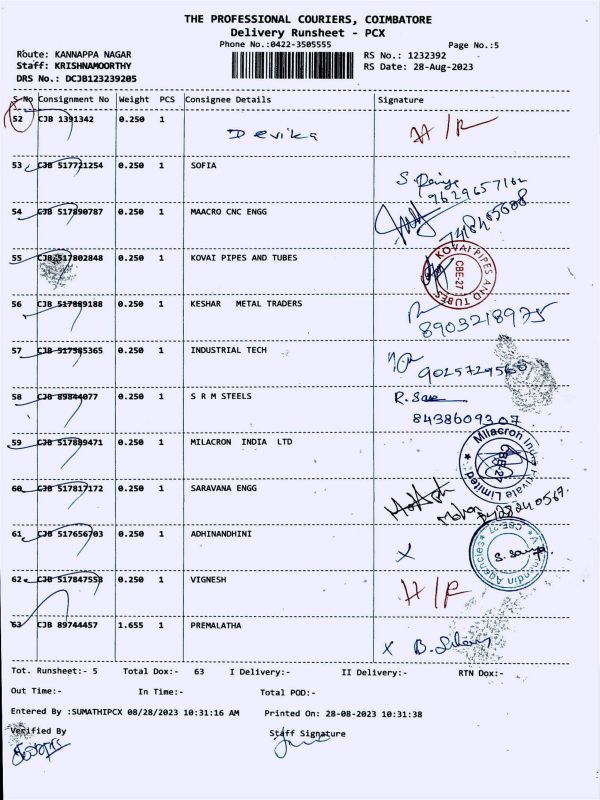 THE PROFESSIONAL COURIERS, COIMBATORE
Delivery Runsheet - PCX
Phone No.:0422-3505555
Page No.:5
Route: KANNAPPA NAGAR
RS No.: 1232392
Staff: KRISHNAMOORTHY
RS Date: 28-Aug-2023
DRS No.: DCJB123239205
S No Consignment No Weight PCS Consignee Details Signature
52 CJB 1391342 0.250 1 Devika H/R
53 CJB 517721254 0.250 1 SOFIA
9629657162
54 CJB 517890787 0.250 1 MAACRO CNC ENGG
55 CJB 517802848 0.250 1 KOVAI PIPES AND TUBES
KOVAI PIPES AND TUBES
CBE-27
56 CJB 517889188 0.250 1 KESHAR METAL TRADERS
8903218975
57 CJB 517585365 0.250 1 INDUSTRIAL TECH
9025729568
58 CJB 89844077 0.250 1 S R M STEELS
8438609307
59 CJB 517889471 0.250 1 MILACRON INDIA LTD
Milacron India Private Limited
CBE-27
60 CJB 517817172 0.250 1 SARAVANA ENGG
61 CJB 517656703 0.250 1 ADHINANDHINI X
62 CJB 517847558 0.250 1 VIGNESH H/R
63 CJB 89744457 1.655 1 PREMALATHA X
Tot. Runsheet:- 5 Total Dox:- 63 I Delivery:- II Delivery:- RTN Dox:-
Out Time:- In Time:- Total POD:-
Entered By :SUMATHIPCX 08/28/2023 10:31:16 AM Printed On: 28-08-2023 10:31:38
Verified By Staff Signature